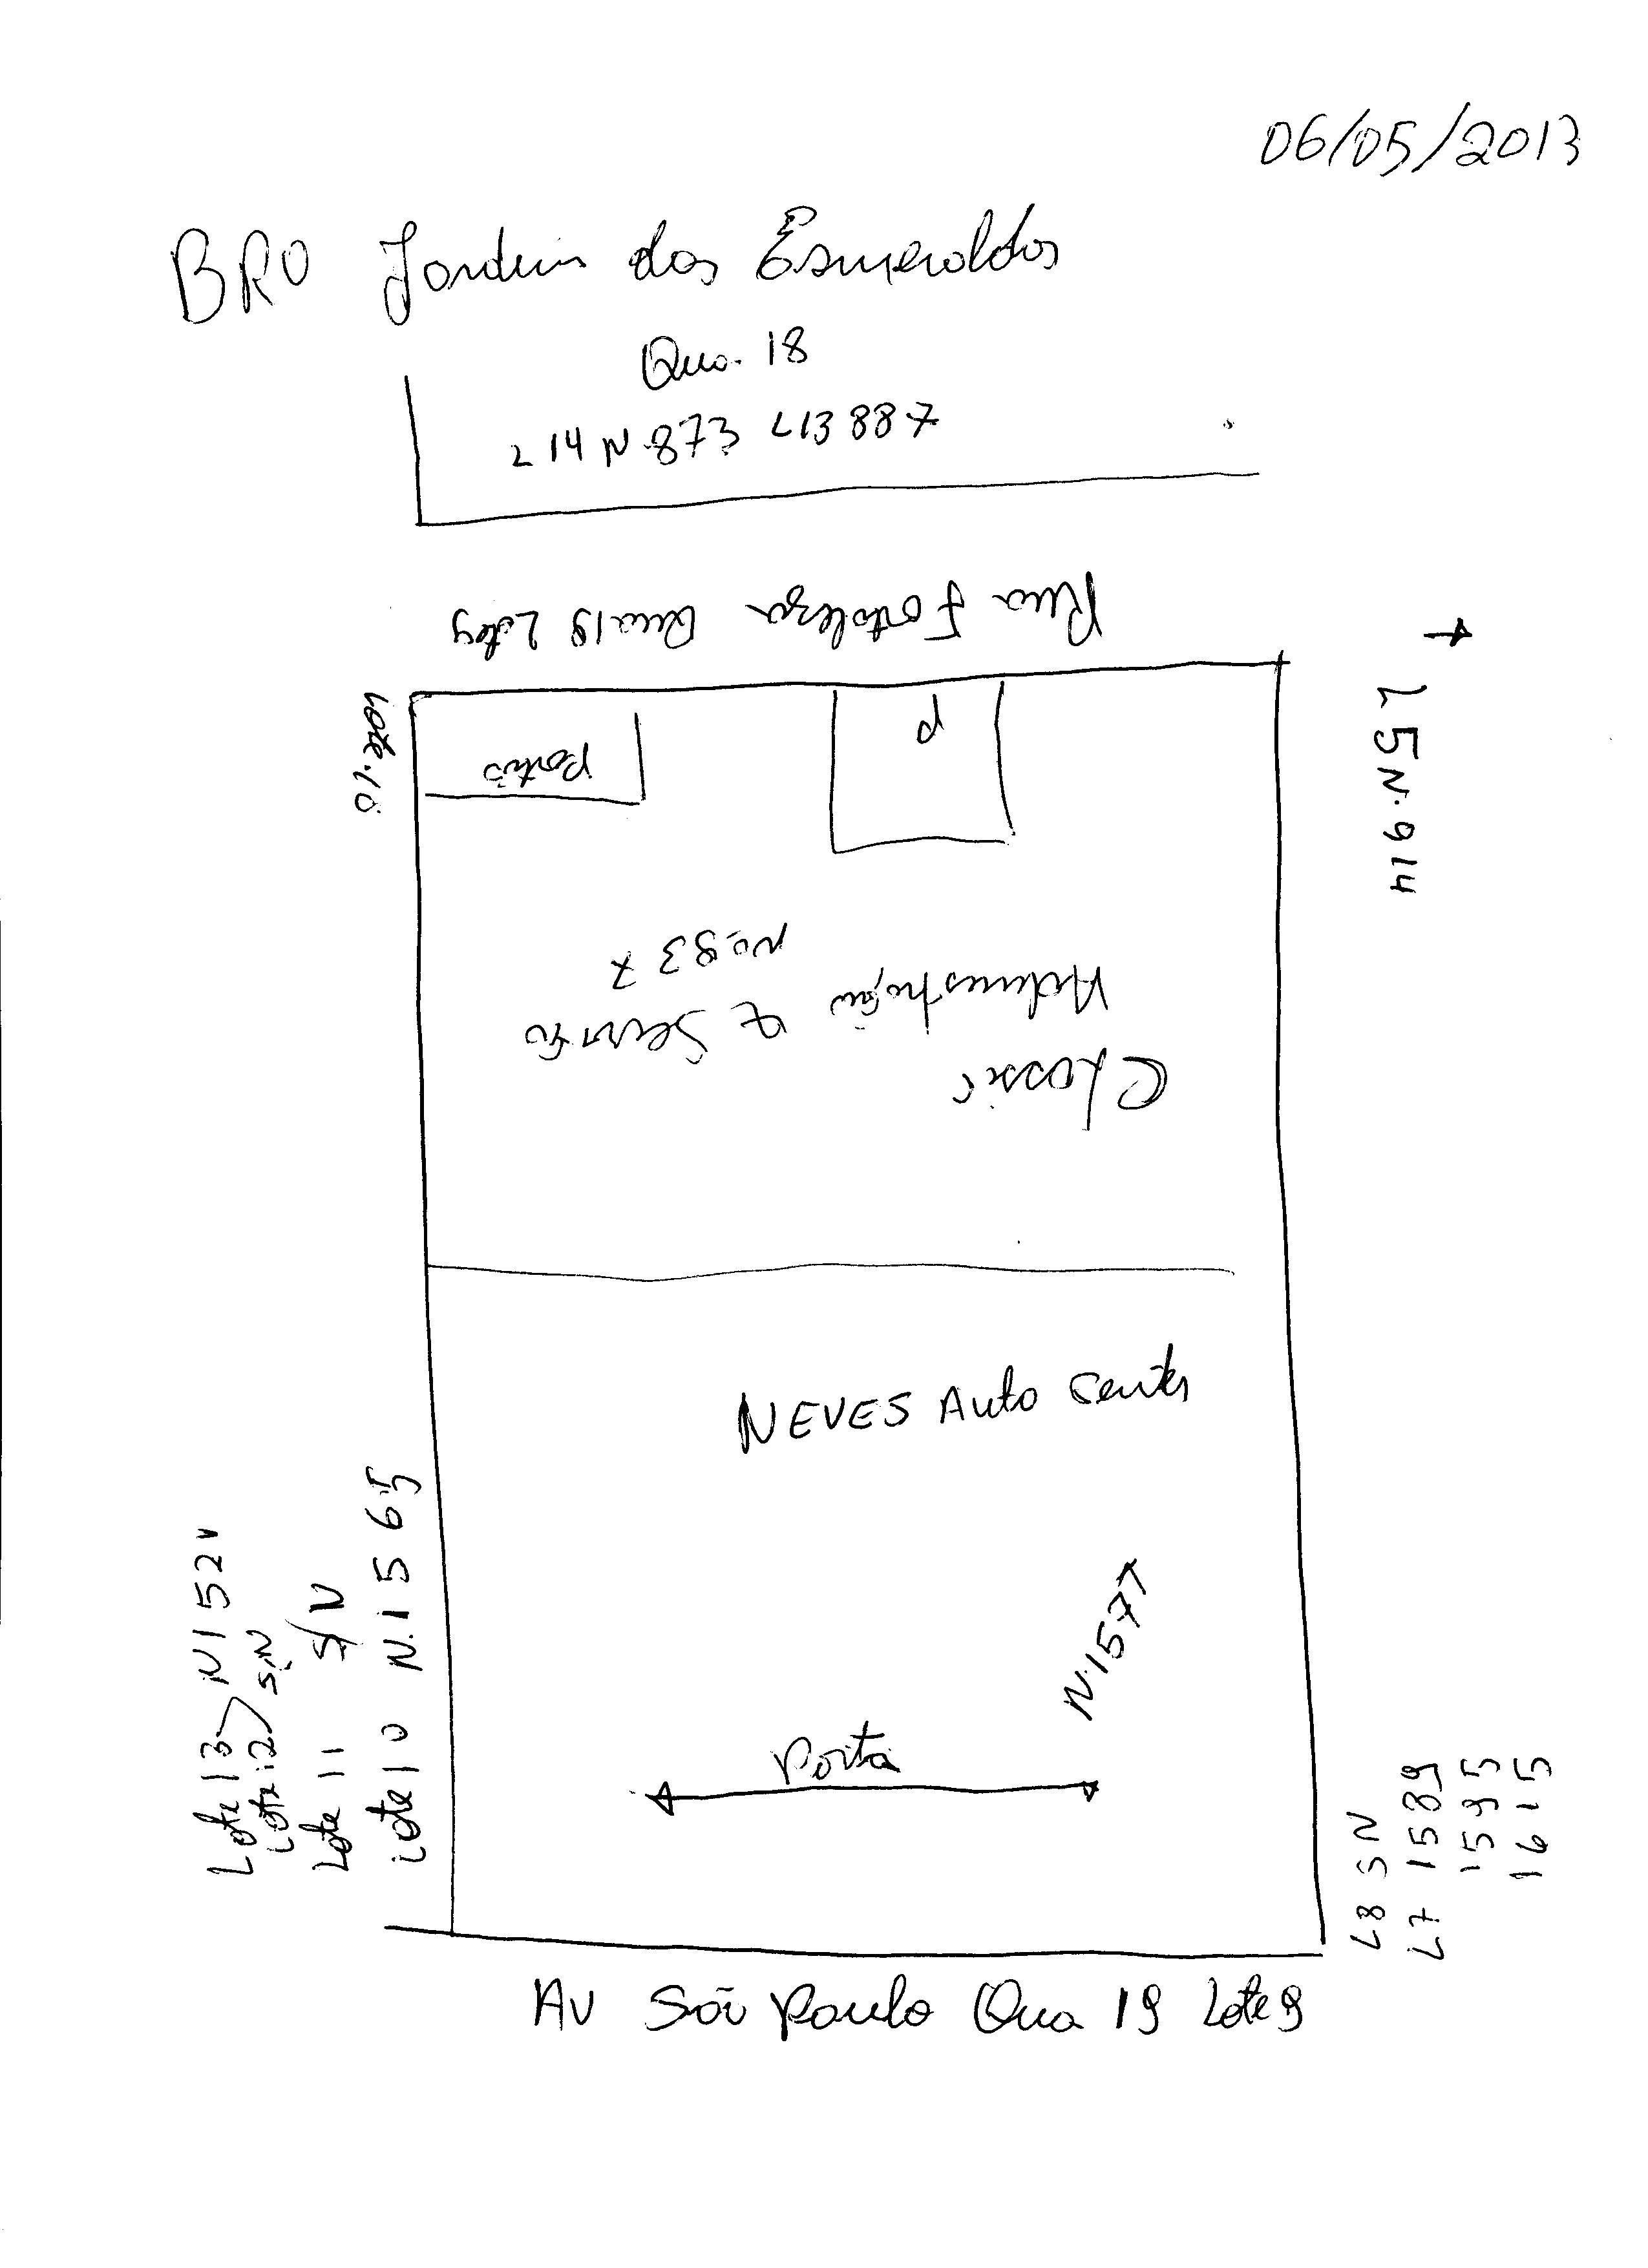 06/05/2013
BRO Jardim das Esmeraldas
Qua. 18
L 14 N.873 L13 887
Rua Fortaleza Qua 19 Lote 9
Lote.10
Portão
P
L5 N.914
Classic
Administração e Serviço
No.937
NEVES Auto Center
N.1577
Porta
Lote 13 N152
Lote 12 S/N
Lote 11 S/N
Lote 10 N.1565
L8 SN
L7 1589
1595
1615
AV São Paulo Qua 19 Lote 9